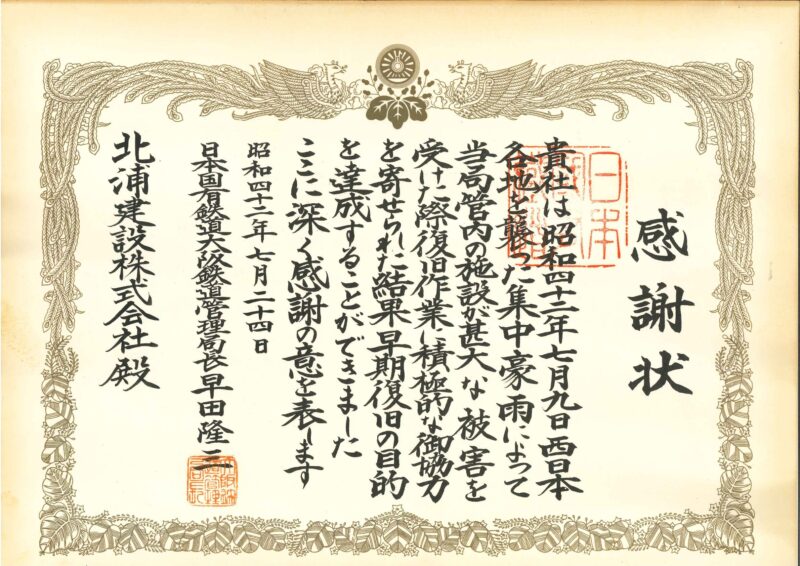 感謝状
日本
貴社は昭和四十二年七月九日西日本
各地を襲った集中豪雨によって
当局管内の施設が甚大な被害を
受けた際復旧作業に積極的な御協力
を寄せられた結果早期復旧の目的
を達成することができました
ここに深く感謝の意を表します
昭和四十二年七月二十四日
日本国有鉄道大阪鉄道管理局長早田隆三
北浦建設株式会社殿